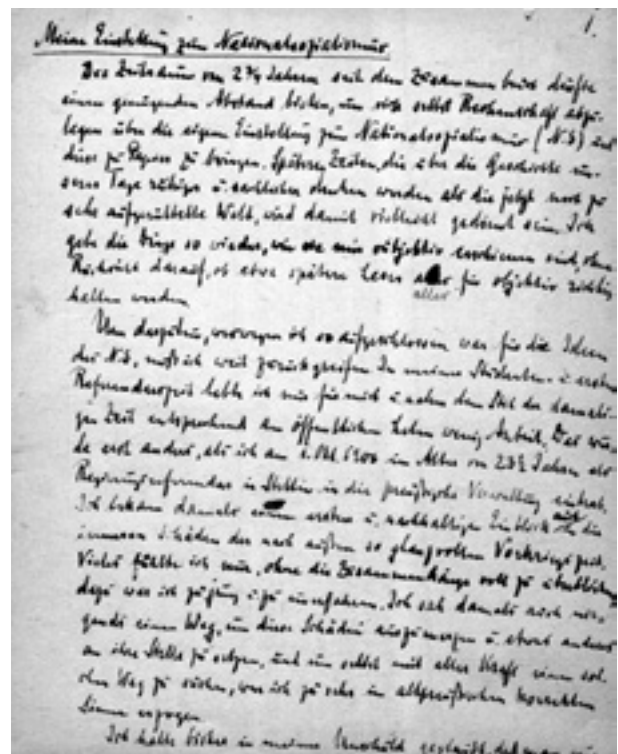 1.
Meine Einstellung zum Nationalsozialismus.
Der Zeitraum von 2 3/4 Jahren seit dem Zusammenbruch dürfte
einen genügenden Abstand bieten, um sich selbst Rechenschaft abzu-
legen über die eigene Einstellung zum Nationalsozialismus (N.S) und
diese zu Papier zu bringen. Spätere Zeiten, die über die Geschichte un-
serer Tage ruhiger u. sachlicher denken werden als die jetzt noch zu
sehr aufgewühlte Welt, wird damit vielleicht gedient sein. Ich
gebe die Dinge so wieder, wie sie mir subjektiv erschienen sind, ohne
Rücksicht darauf, ob etwa spätere Leser alles für objektiv richtig
halten werden.
Um darzutun, weswegen ich so aufgeschlossen war für die Ideen
des N.S, muß ich weit zurückgreifen. In meiner Studenten- u. ersten
Referendarzeit lebte ich nur für mich u. nahm dem Stil der damali-
gen Zeit entsprechend am öffentlichen Leben wenig Anteil. Das wur-
de erst anders, als ich am 1. Okt. 1900 im Alter von Jahren als
Regierungsreferendar in Stettin in die preußische Verwaltung eintrat.
Ich bekam damals einen ersten u. nachhaltigen Einblick in die
inneren Schäden der nach außen so glanzvollen Vorkriegszeit.
Vieles fühlte ich nur, ohne die Zusammenhänge voll zu überblicken,
dazu war ich zu jung u. zu unerfahren. Ich sah damals auch nir-
gends einen Weg, um diese Schäden auszumerzen u. etwas anderes
an ihre Stelle zu setzen, und um selbst mit aller Kraft einen sol-
chen Weg zu suchen, war ich zu sehr im altpreußischen korrekten
Sinne erzogen.
Ich hätte bisher in meiner Unschuld geglaubt, daß man